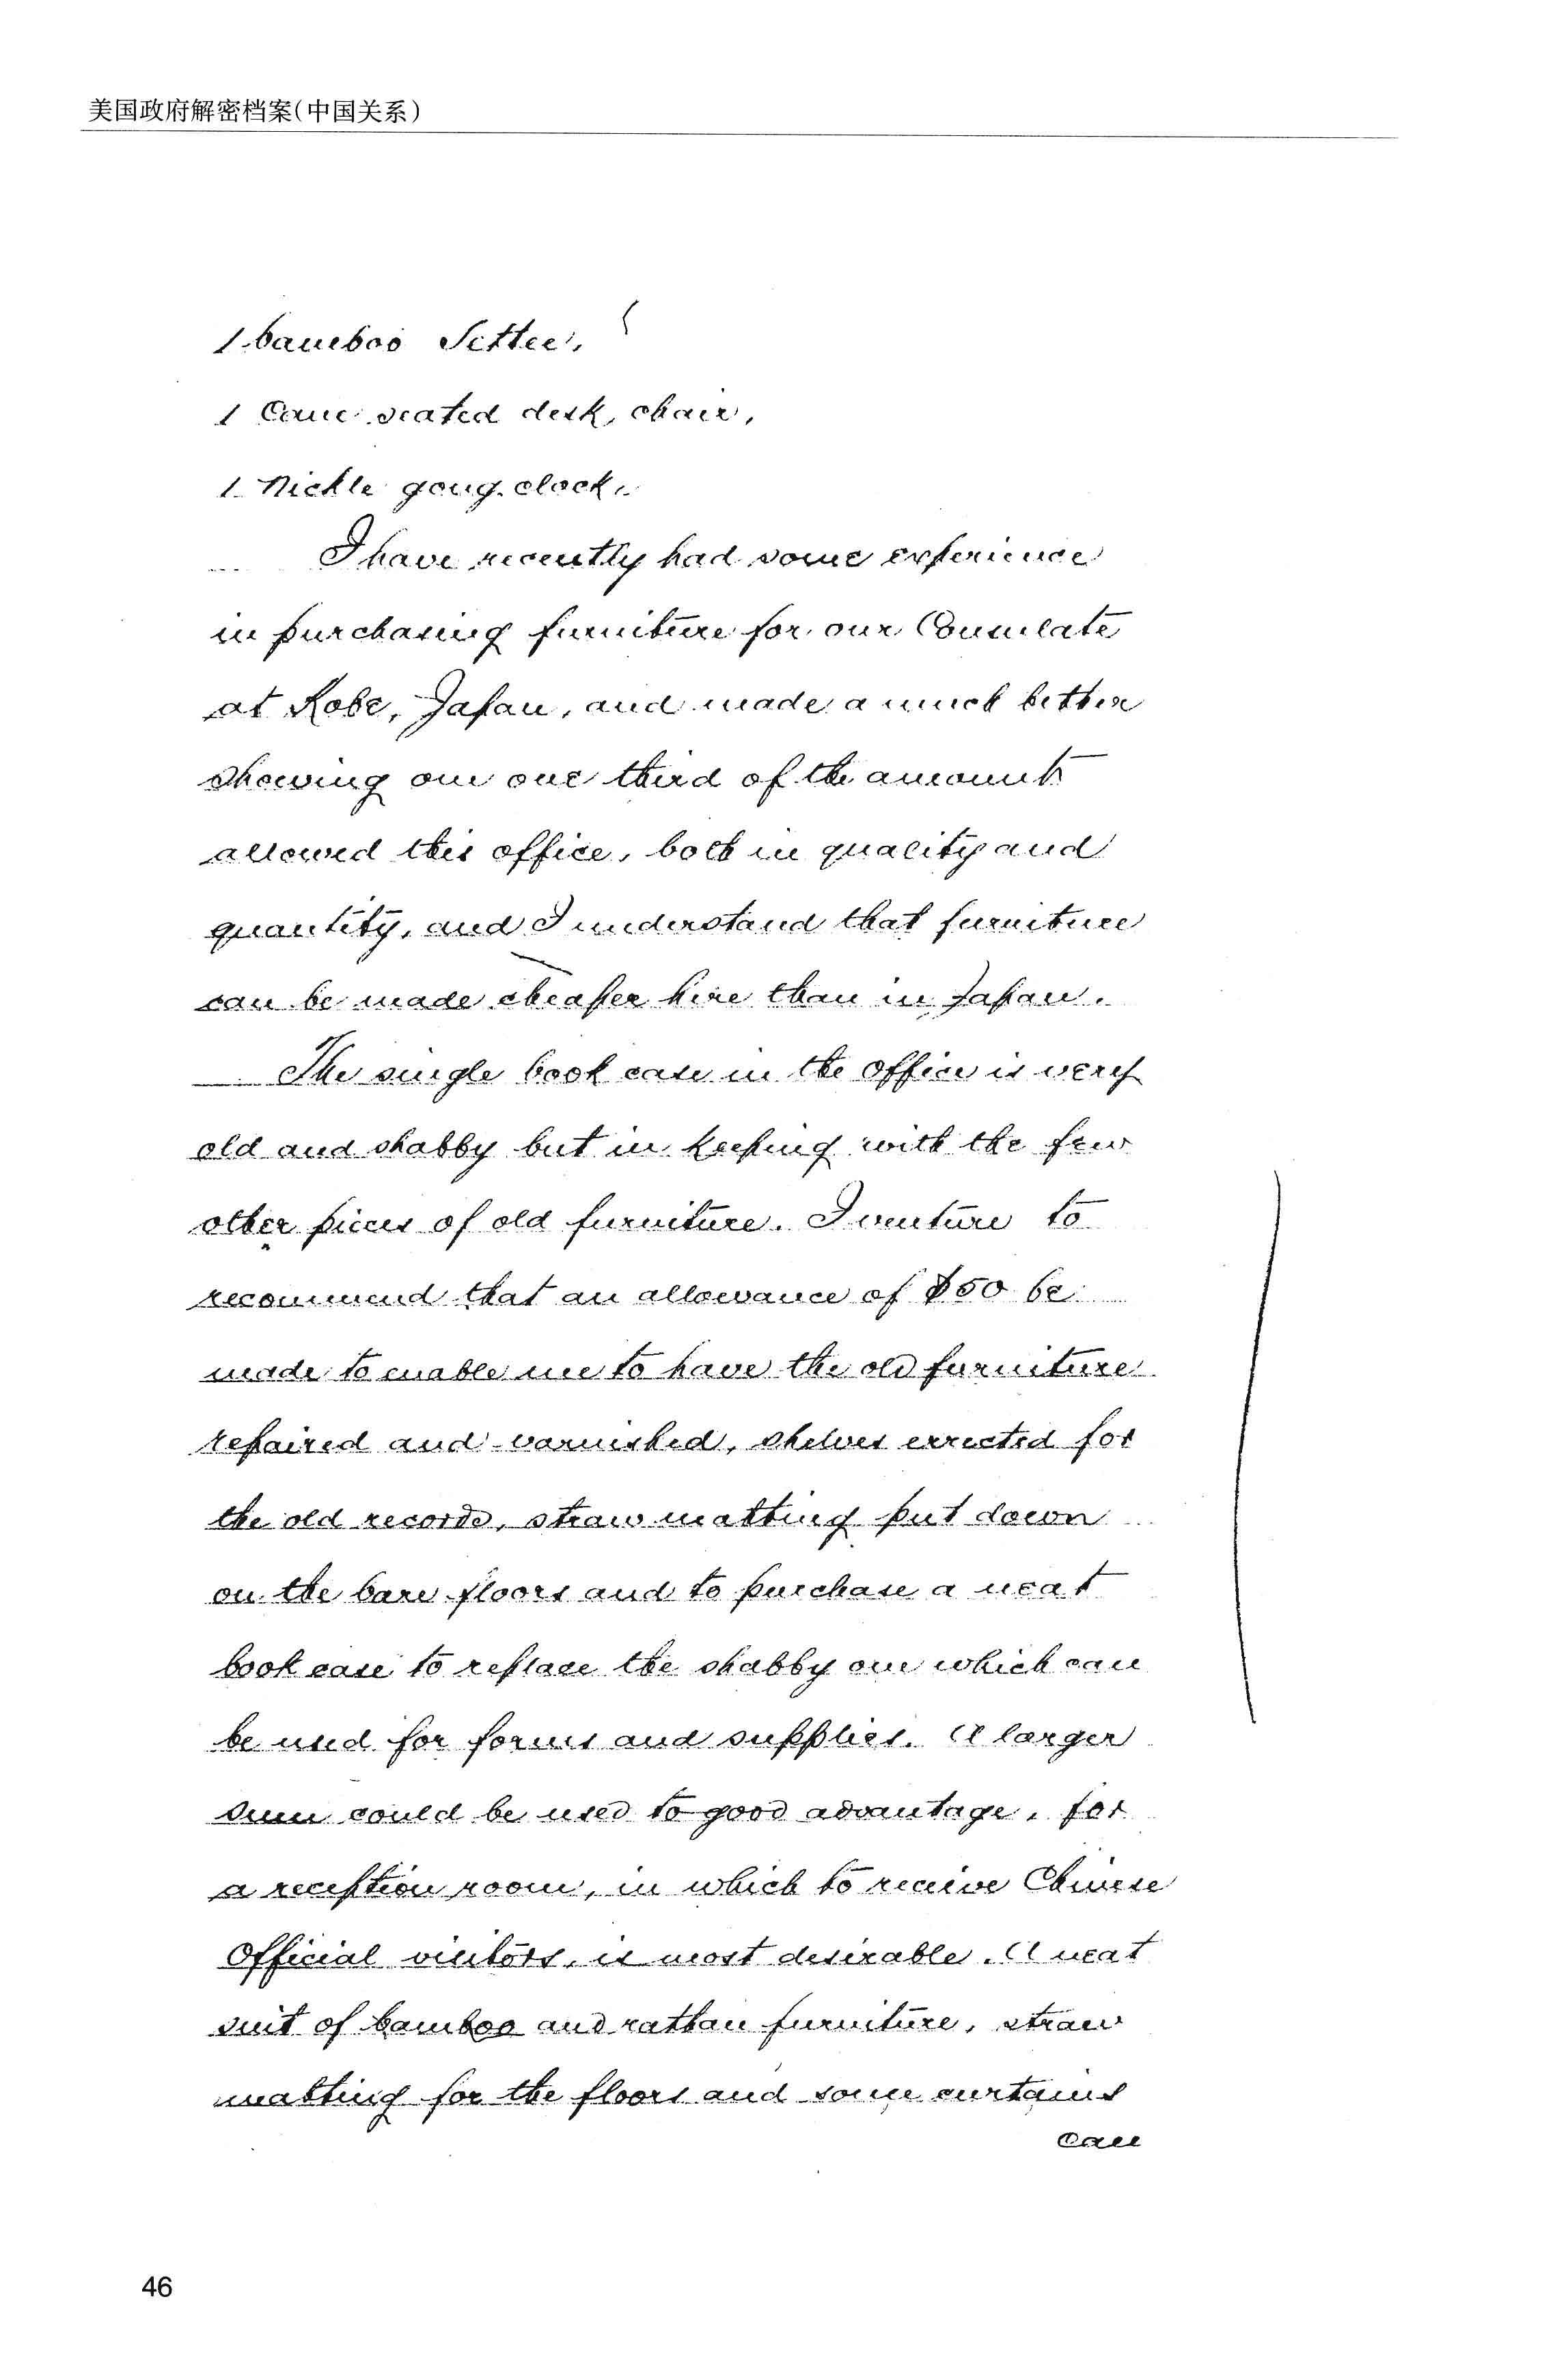 美国政府解密档案(中国关系)
1 bamboo Settee,
1 Cane seated desk, chair,
1 Nickle gong clock.
I have recently had some experience
in purchasing furniture for our Consulate
at Kobe, Japan, and made a much better
showing on one third of the amount
allowed this office, both in quality and
quantity, and I understand that furniture
can be made cheaper here than in Japan.
The single book case in the office is very
old and shabby but in keeping with the few
other pieces of old furniture. I venture to
recommend that an allowance of $50 be
made to enable me to have the old furniture
repaired and varnished, shelves errected for
the old records, straw matting put down
on the bare floors and to purchase a neat
book case to replace the shabby one which can
be used for forms and supplies. A larger
sum could be used to good advantage, for
a reception room, in which to receive Chinese
Official visitors, is most desirable. A neat
suit of bamboo and rattan furniture, straw
matting for the floors and some curtains
can
46